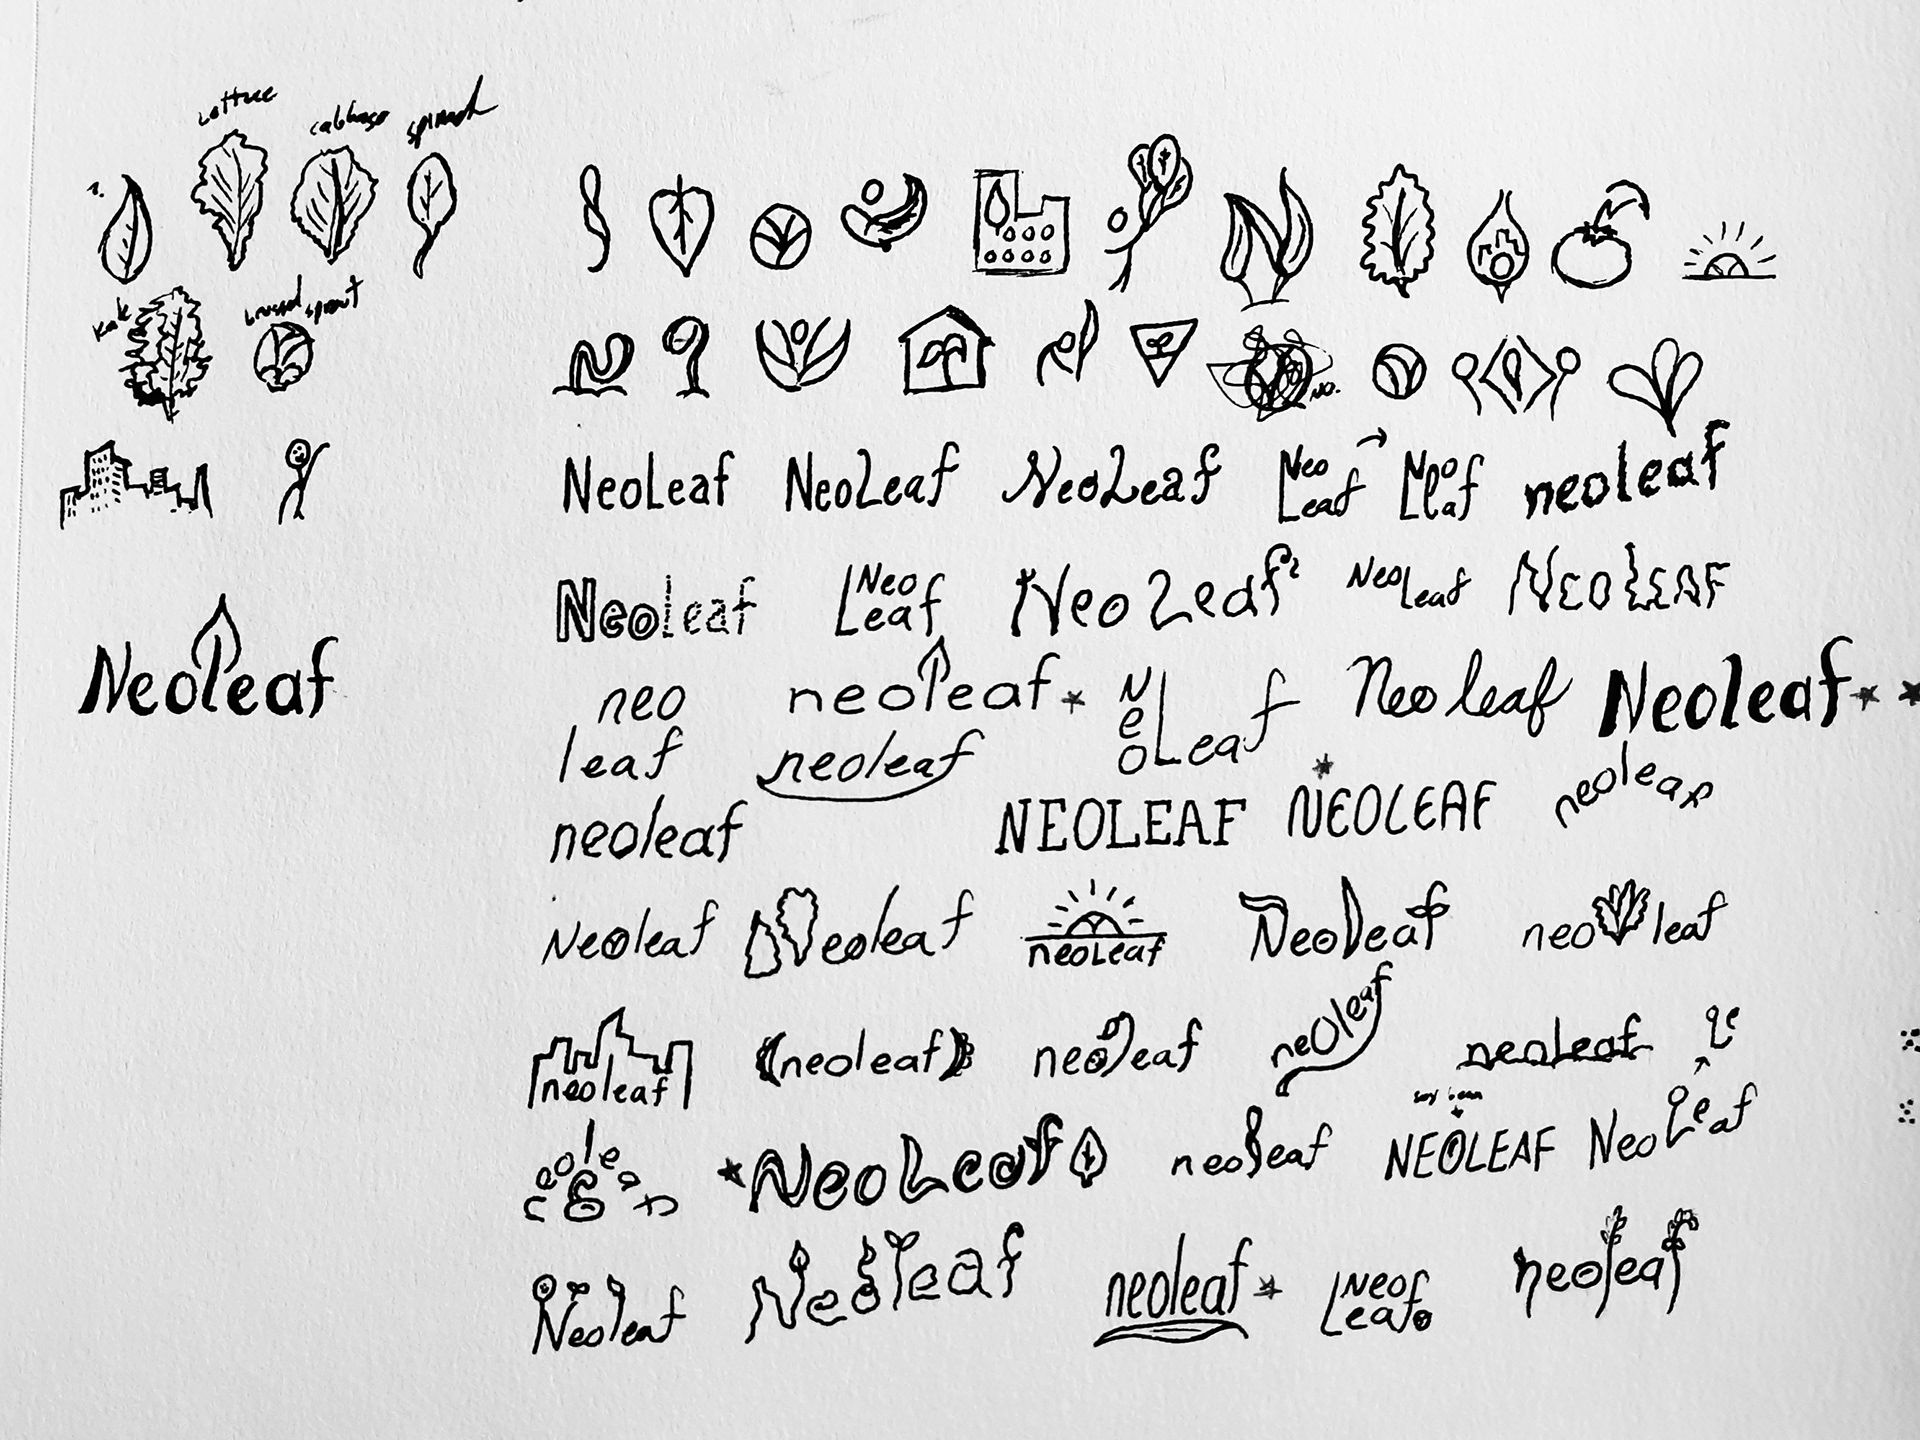 lettuce cabbage spinach
kale brussel sprout
no.
NeoLeaf NeoLeaf NeoLeaf Neo Leaf Neo Lfaf neoleaf
Neoleaf Neo Leaf Neo Leaf Neo Leaf NEOLEAF
Neoleaf
neo leaf neoleaf neo Leaf Neo leaf Neoleaf
neoleaf
neoleaf NEOLEAF NEOLEAF neoleaf
Neoleaf Neoleaf neoLeaf Neoleaf neo leaf
neoleaf neoleaf neoleaf neoleaf neoleaf le
soy bean
neoleaf NeoLeaf neoleaf NEOLEAF NeoLeaf
Neoleaf Neoleaf neoleaf Neo Leaf neoleaf